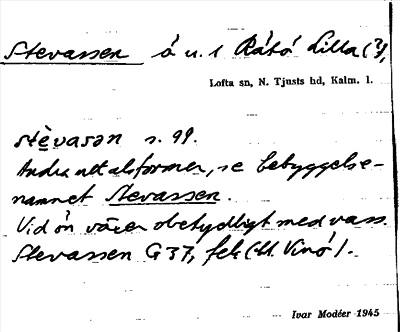 Stevassen ö u. 1 Rätö Lilla (?),
Lofta sn, N. Tjusts hd, Kalm. l.
stèvasən s. 99.
Andra uttalsformer, se bebyggelse-
namnet Stevassen.
Vid ön växer obetydligt med vass.
Stevassen G 37, fek (bl. Vinö).
Ivar Modéer 1945